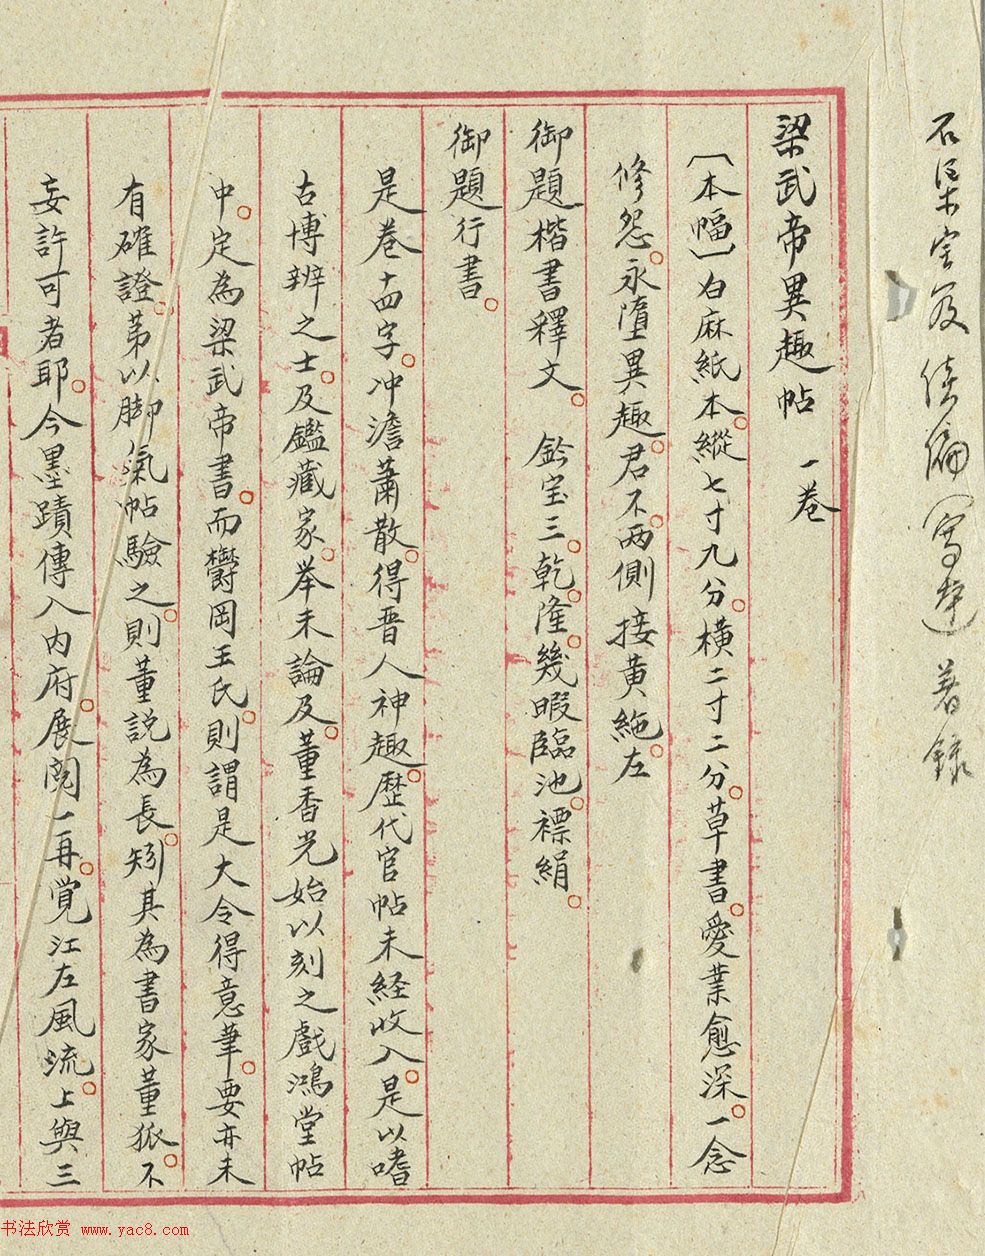 石渠宝笈续编 寧壽 著録
梁武帝異趣帖 一卷
〔本幅〕白麻紙本。縱七寸九分。橫二寸二分。草書。愛業愈深。一念
修怨。永墮異趣。君不。两側接黃絁。左
御題楷書釋文。 鈐宝三。乾隆。幾暇臨池。褾絹。
御題行書。
是卷十四字。冲澹蕭散。得晋人神趣。歷代官帖未経收入。是以嗜
古博辨之士。及鑑藏家。举未論及。董香光始以刻之戲鴻堂帖
中。定為梁武帝書。而欝岡王氏。則謂是大令得意筆。要亦未
有確證。苐以脚氣帖驗之。則董說為長。矧其為書家董狐。不
妄許可者耶。今墨蹟傳入内府。展閱一再。覚江左風流。上與三
书法欣赏 www.yac8.com